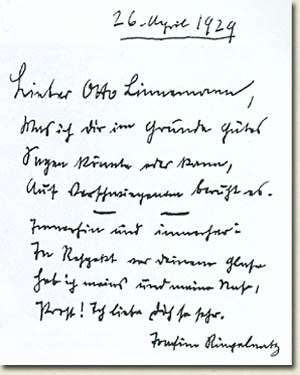 26. April 1929
Lieber Otto Linnemann,
Was ich dir im Grunde Gutes
Sagen könnte oder kann,
Auf Verschwiegenem beruht es.
Immerhin und immerher:
In Respekt vor deinem Glase
Hab ich meins und meine Nase,
Prost! Ich liebe Dich so sehr.
Joachim Ringelnatz